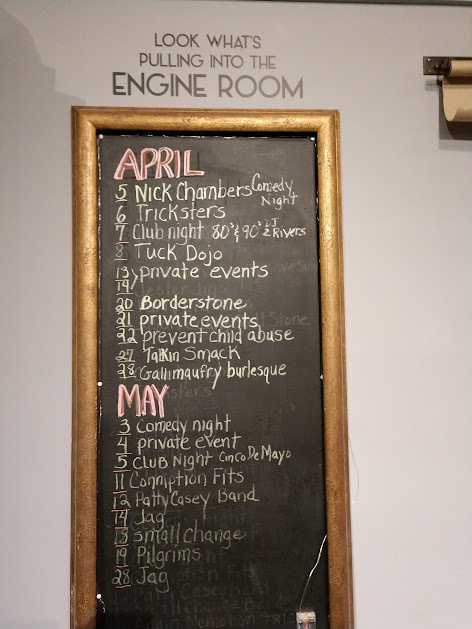 LOOK WHAT'S
PULLING INTO THE
ENGINE ROOM
APRIL
5 Nick Chambers Comedy Night
6 Tricksters
7 Club night 80's & 90's DJ Rivers
8 Tuck Dojo
13 private events
14
20 Borderstone
21 private events
22 prevent child abuse
27 Talkin Smack
28 Gallimaufry burlesque
MAY
3 Comedy night
4 private event
5 Club Night Cinco De Mayo
11 Conniption Fits
12 Patty Casey Band
14 Jag
18 Small Change
19 Pilgrims
28 Jag